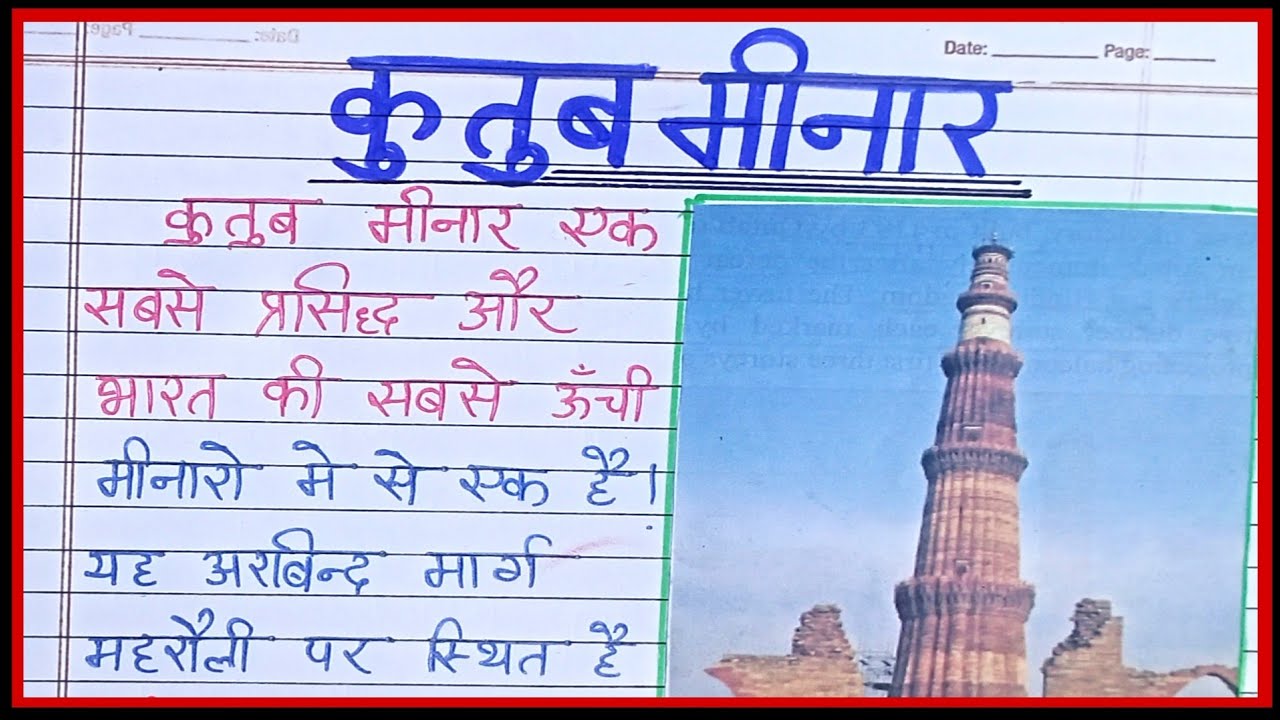 Date: ________ Page: _____
कुतुब मीनार
कुतुब मीनार एक
सबसे प्रसिद्ध और
भारत की सबसे ऊँची
मीनारो मे से एक है।
यह अरबिन्द मार्ग
महरौली पर स्थित है